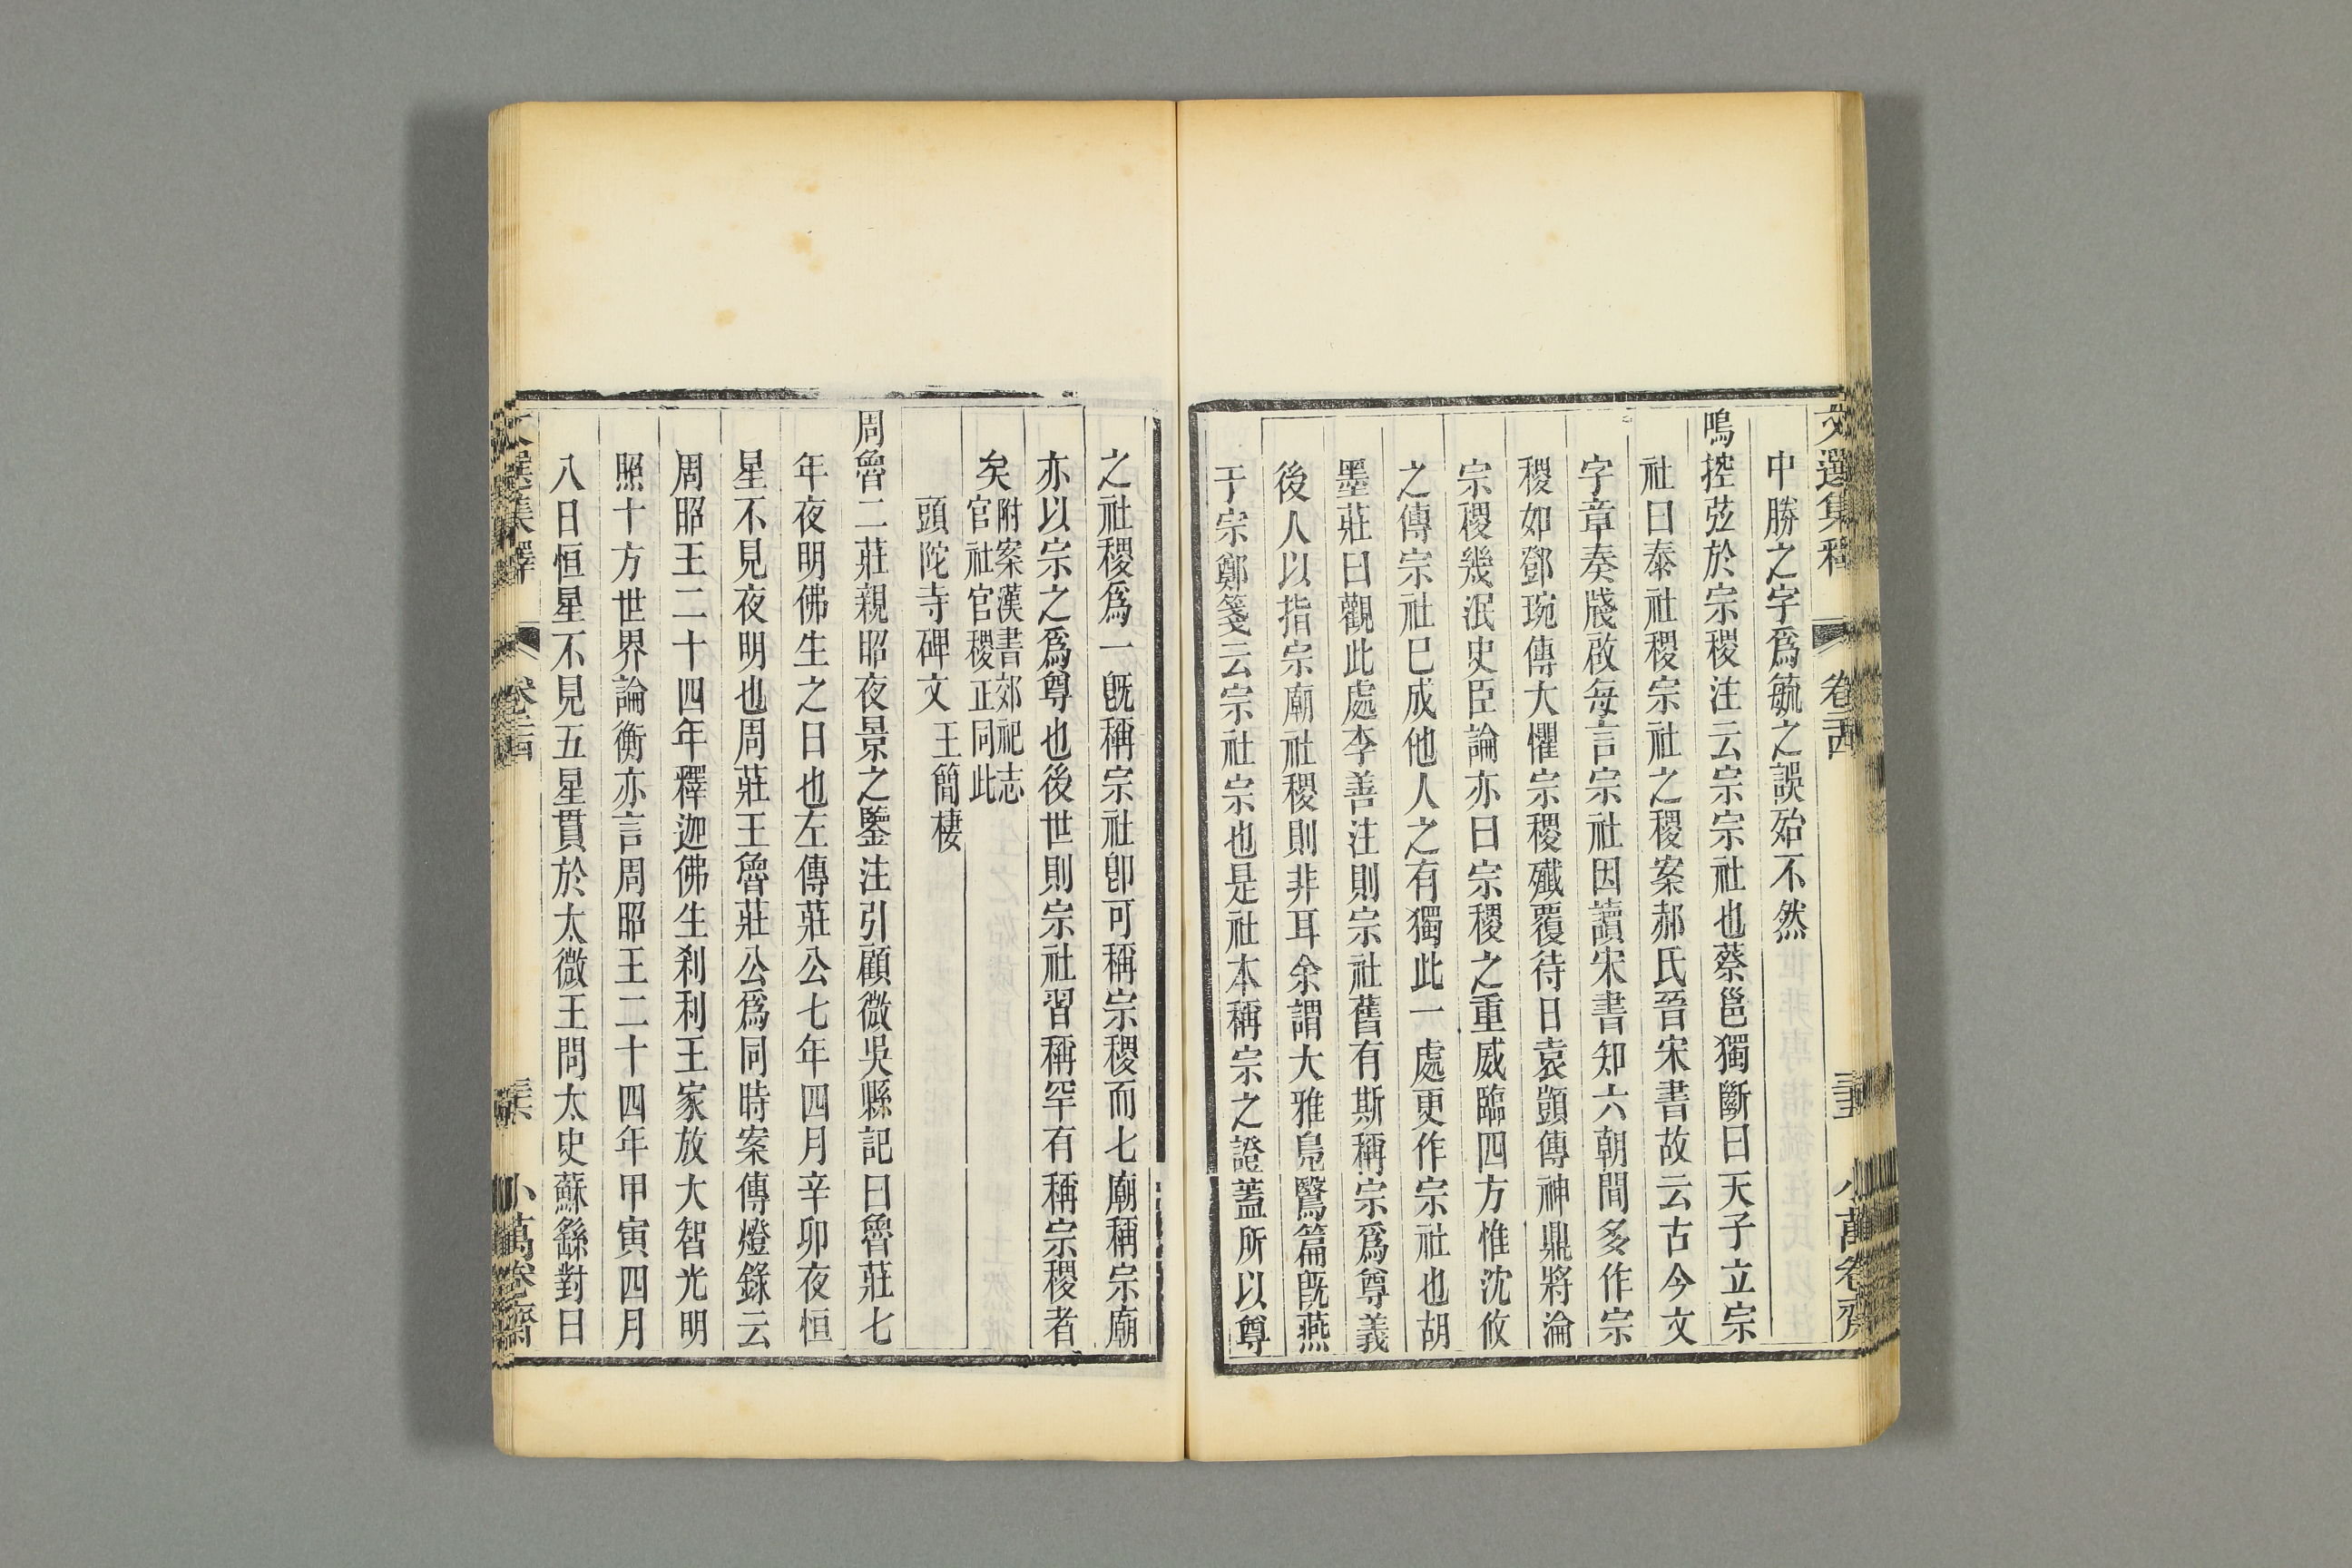 文選集釋 卷二十四 三十五 小萬卷齋
中勝之字爲毓之誤殆不然
鳴控弦於宗稷注云宗宗社也蔡邕獨斷曰天子立宗
社曰泰社稷宗社之稷案郝氏晉宋書故云古今文
字章奏牋啟每言宗社因讀宋書知六朝間多作宗
稷如鄧琬傳大懼宗稷殲覆待日袁顗傳神鼎將淪
宗稷幾泯史臣論亦曰宗稷之重威臨四方惟沈攸
之傳宗社已成他人之有獨此一處更作宗社也胡
墨莊曰觀此處李善注則宗社舊有斯稱宗爲尊義
後人以指宗廟社稷則非耳余謂大雅鳧鷖篇旣燕
于宗鄭箋云宗社宗也是社本稱宗之證蓋所以尊
之社稷爲一旣稱宗社卽可稱宗稷而七廟稱宗廟
亦以宗之爲尊也後世則宗社習稱罕有稱宗稷者
矣附案漢書郊祀志
官社官稷正同此
頭陀寺碑文 王簡棲
周魯二莊親昭夜景之鑒注引顧微吳縣記曰魯莊七
年夜明佛生之日也左傳莊公七年四月辛卯夜恒
星不見夜明也周莊王魯莊公爲同時案傳燈錄云
周昭王二十四年釋迦佛生刹利王家放大智光明
照十方世界論衡亦言周昭王二十四年甲寅四月
八日恒星不見五星貫於太微王問太史蘇繇對曰
選集釋 卷二十四 小萬卷齋